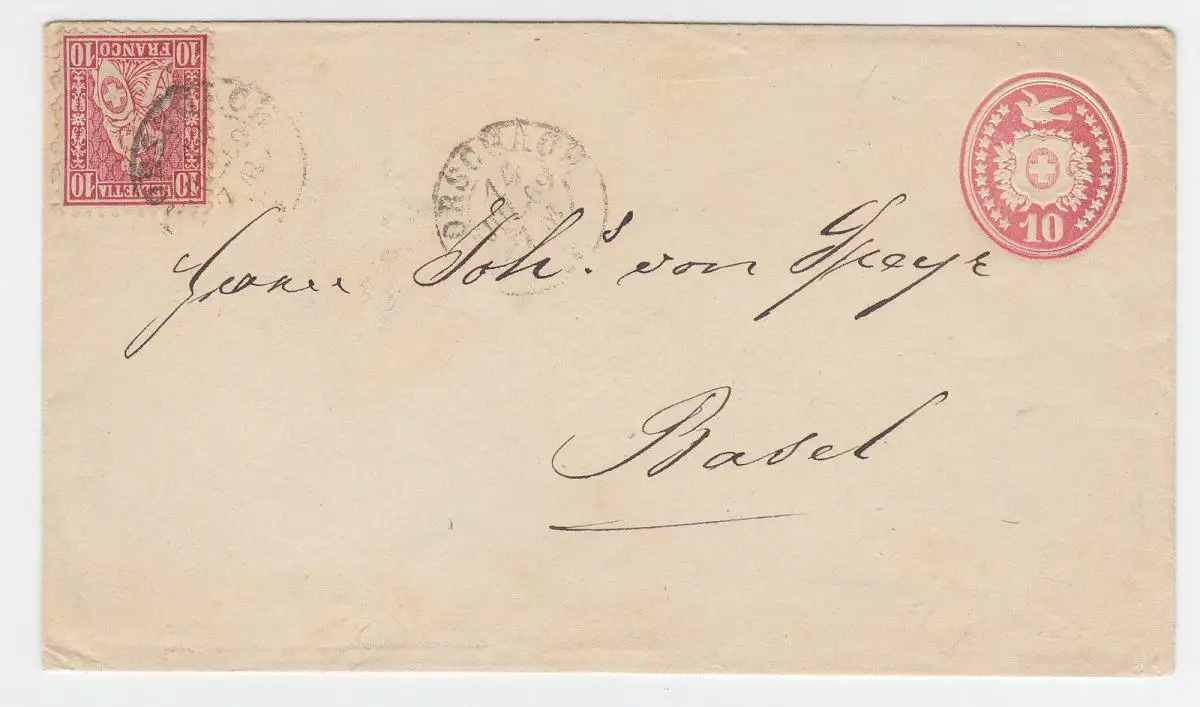 10 FRANCO 10
10 HELVETIA 10
RORSCHACH
10
Herrn Joh.s von Speyr
Basel